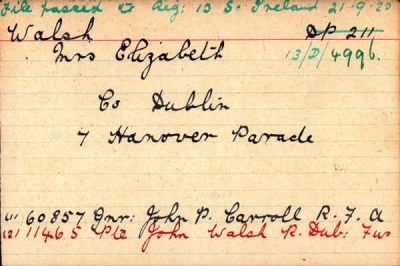 File passed to Reg: 13 S. Ireland 21-9-20
Walsh DP 211
Mrs Elizabeth 13/D/4996.
Co Dublin
7 Hanover Parade
(1) 60857 Gnr: John P. Carroll R. F. A
(2) 11465 Pte John Walsh R. Dub: Fus